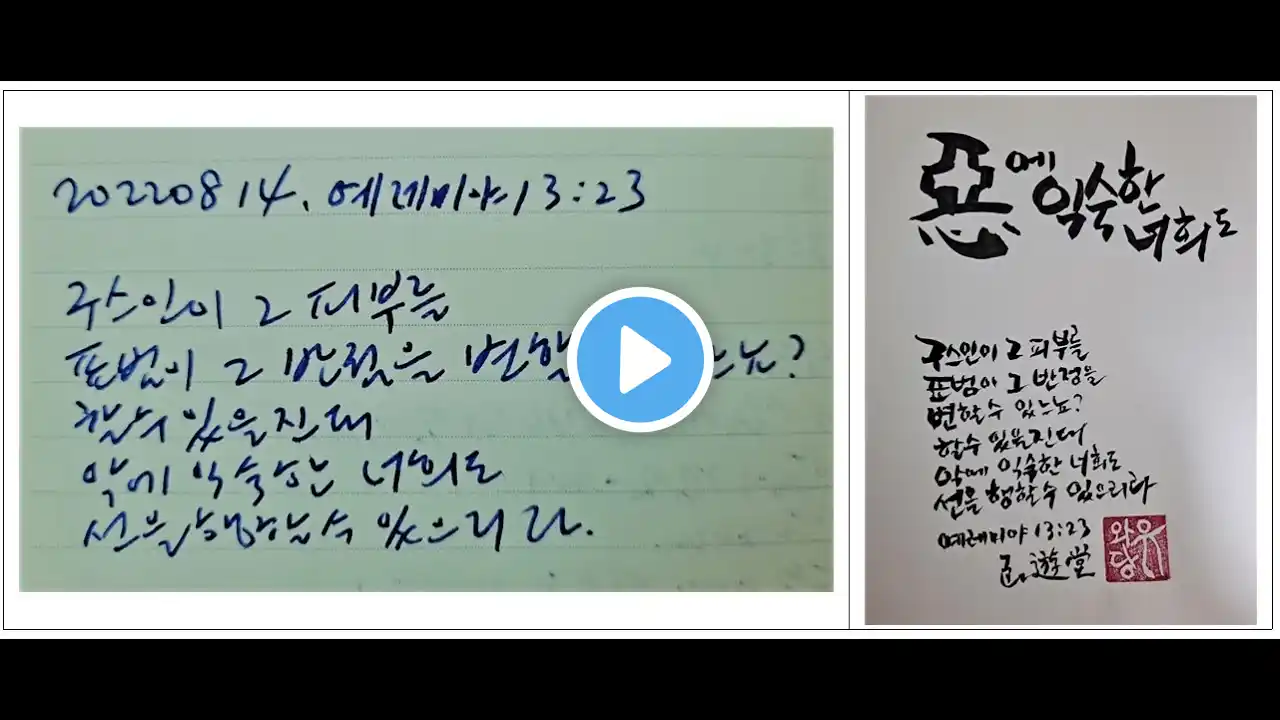 20220814. 예레미야 13:23
구스인이 그 피부를
표범이 그 반점을 변할 느뇨?
할수 있을진대
악에 익숙한 너희도
선을 행할수 있으리라.
惡에 익숙한 너희도
구스인이 그 피부를
표범이 그 반점을
변할수 있느뇨?
할수 있을진대
악에 익숙한 너희도
선을 행할수 있으리라
예레미야 13:23
遊堂